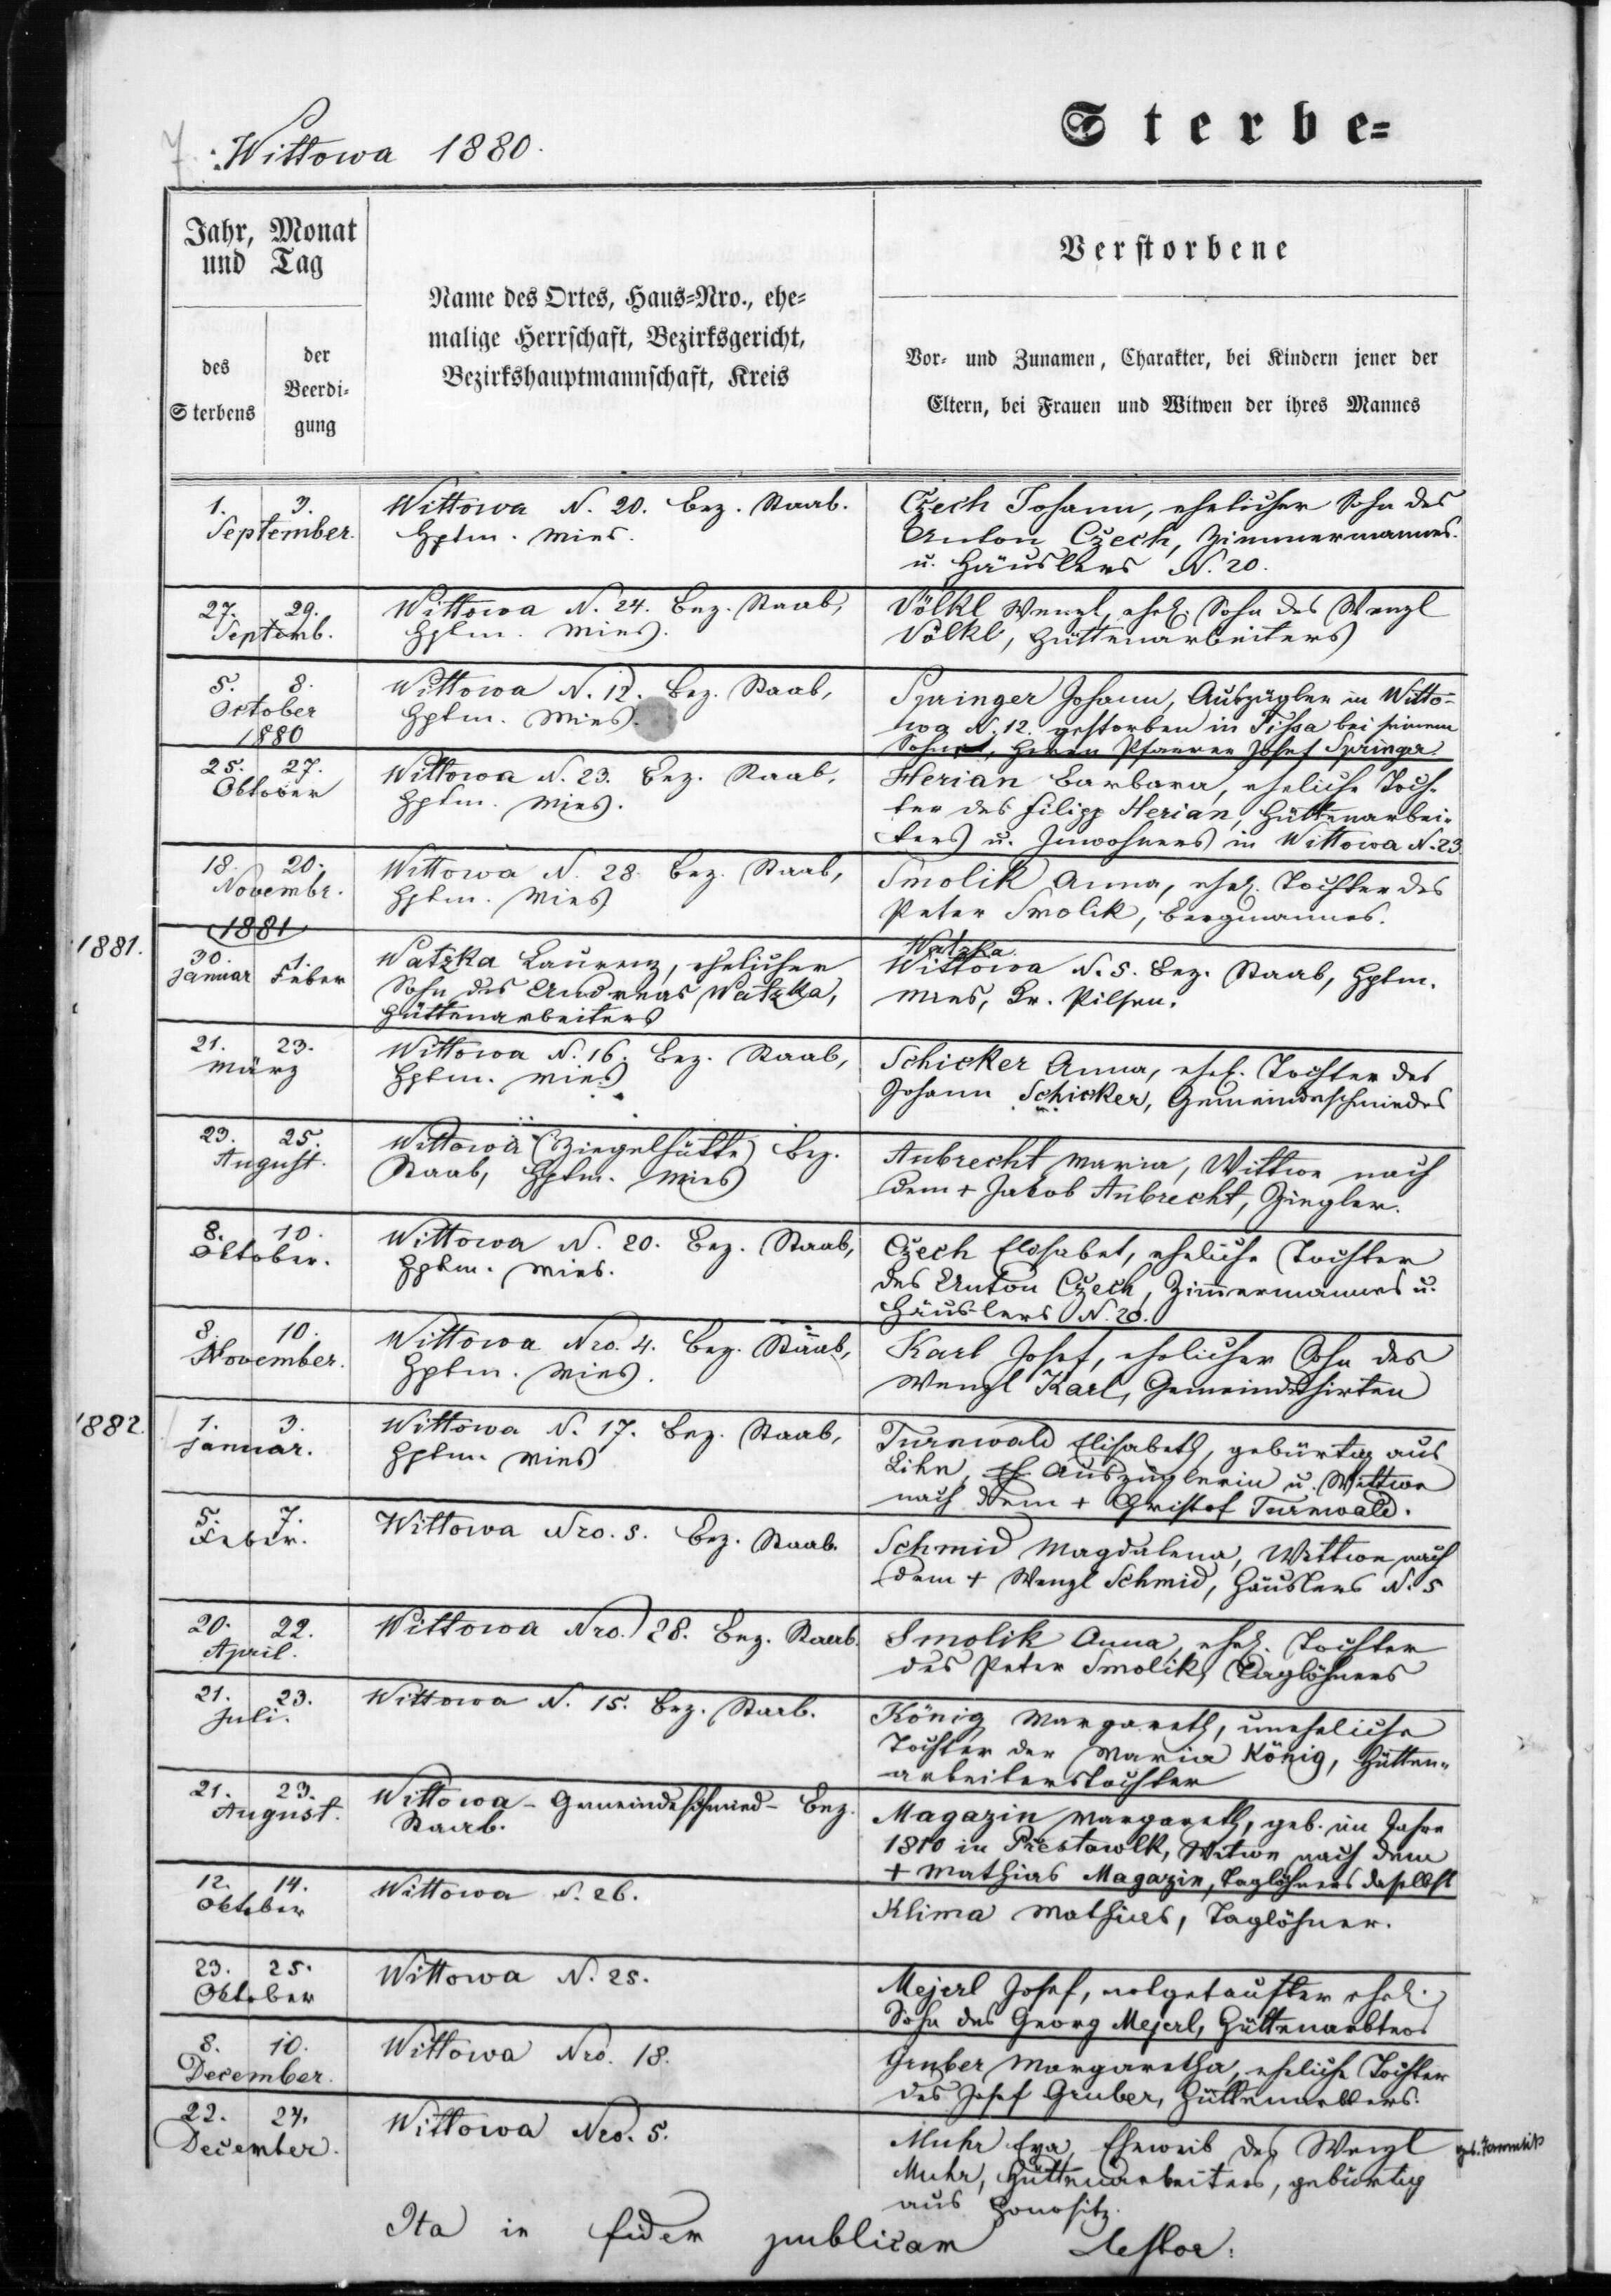 7. Wittowa 1880.
Sterbe=
Jahr, Monat
und Tag
des
Sterbens
der
Beerdi-
gung
Name des Ortes, Haus=Nro., ehe=
malige Herrschaft, Bezirksgericht,
Bezirkshauptmannschaft, Kreis
Verstorbene
Vor- und Zunamen, Charakter, bei Kindern jener der
Eltern, bei Frauen und Witwen der ihres Mannes
1. 3.
September.
Wittowa N. 20. Bez. Staab.
Hptm. Mies.
Czech Johann, ehelicher Sohn des
Anton Czech, Zimmermannes.
u. Häuslers N. 20.
27. 29.
Septemb.
Wittowa N. 24. Bez. Staab,
Hptm. Mies.
Völkl Wenzl, ehel. Sohn des Wenzl
Völkl, Hüttenarbeiters
5. 8.
October
1880
Wittowa N. 12. Bez. Staab,
Hptm. Mies.
Springer Johann, Auszügler in Witto-
wa N. 12. gestorben in Tissa bei seinem
Sohne, Herrn Pfarrer Josef Springer.
25. 27.
Oktober
Wittowa N. 23. Bez. Staab,
Hptm. Mies.
Herian Barbara, eheliche Toch-
ter des Filipp Herian, Hüttenarbei-
ters u. Inwohners in Wittowa N. 23.
18. 20.
Novembr.
Wittowa N. 28. Bez. Staab,
Hptm. Mies
Smolik Anna, ehel. Tochter des
Peter Smolik, Bergmannes.
1881
1881.
30. 1.
Januar Feber
Watzka Laurenz, ehelicher
Sohn des Andreas Watzka,
Hüttenarbeiters
Watzka
Wittowa N. 5. Bez. Staab, Hptm.
Mies, Kr. Pilsen.
21. 23.
März
Wittowa N. 16. Bez. Staab,
Hptm. Mies
Schicker Anna, ehel. Tochter des
Johann Schicker, Gemeindeschmiedes
23. 25.
August.
Wittowa (Ziegelhütte) Bez.
Staab, Hptm. Mies
Aubrecht Maria, Wittwe nach
dem + Jakob Aubrecht, Ziegler.
8. 10.
Oktober.
Wittowa N. 20. Bez. Staab,
Hptm. Mies.
Czech Elisabet, eheliche Tochter
des Anton Czech, Zimmermannes u.
Häuslers N. 20.
8. 10.
November.
Wittowa Nro. 4. Bez. Staab,
Hptm. Mies.
Karl Josef, ehelicher Sohn des
Wenzl Karl, Gemeindehirten
1882.
1. 3.
Januar.
Wittowa N. 17. Bez. Staab,
Hptm. Mies
Turnwald Elisabeth, gebürtig aus
Lihn, Auszüglerin u. Wittwe
nach dem + Christof Turnwald.
5. 7.
Feber.
Wittowa Nro. 5. Bez. Staab.
Schmid Magdalena, Wittwe nach
dem + Wenzl Schmid, Häuslers N. 5
20. 22.
April.
Wittowa Nro. 28. Bez. Staab.
Smolik Anna, ehel. Tochter
des Peter Smolik, Taglöhners
21. 23.
Juli.
Wittowa N. 15. Bez. Staab.
König Margareth, uneheliche
Tochter der Maria König, Hütten-
arbeiterstochter
21. 23.
August.
Wittowa - Gemeindeschmied - Bez.
Staab.
Magazin Margareth, geb. im Jahre
1810 in Witwe nach dem
+ Mathias Magazin, Taglöhners daselbst
12. 14.
Oktober
Wittowa N. 26.
Klima Mathias, Taglöhner.
23. 25.
Oktober
Wittowa N. 25.
Mejerl Josef, notgetaufter ehel.
Sohn des Georg Mejerl, Hüttenarbters
8. 10.
December.
Wittowa Nro. 18.
Gruber Margaretha, eheliche Tochter
des Josef Gruber, Hüttenarbters.
22. 24.
December.
Wittowa Nro. 5.
Muhr Eva, Eheweib des Wenzl
Muhr, Hüttenarbeiters, gebürtig
aus Honositz.
geb.
Ita in fidem publicam testor.